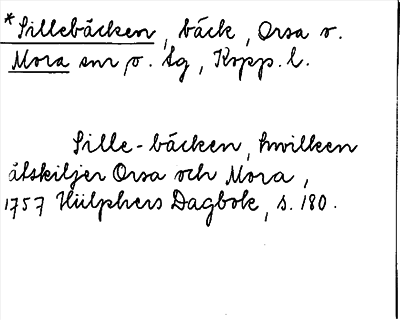 *Sillebäcken, bäck, Orsa o.
Mora snr o. tg, Kopp. l.
Sille-bäcken, hwilken
åtskiljer Orsa och Mora,
1757 Hülphers Dagbok, s. 180.